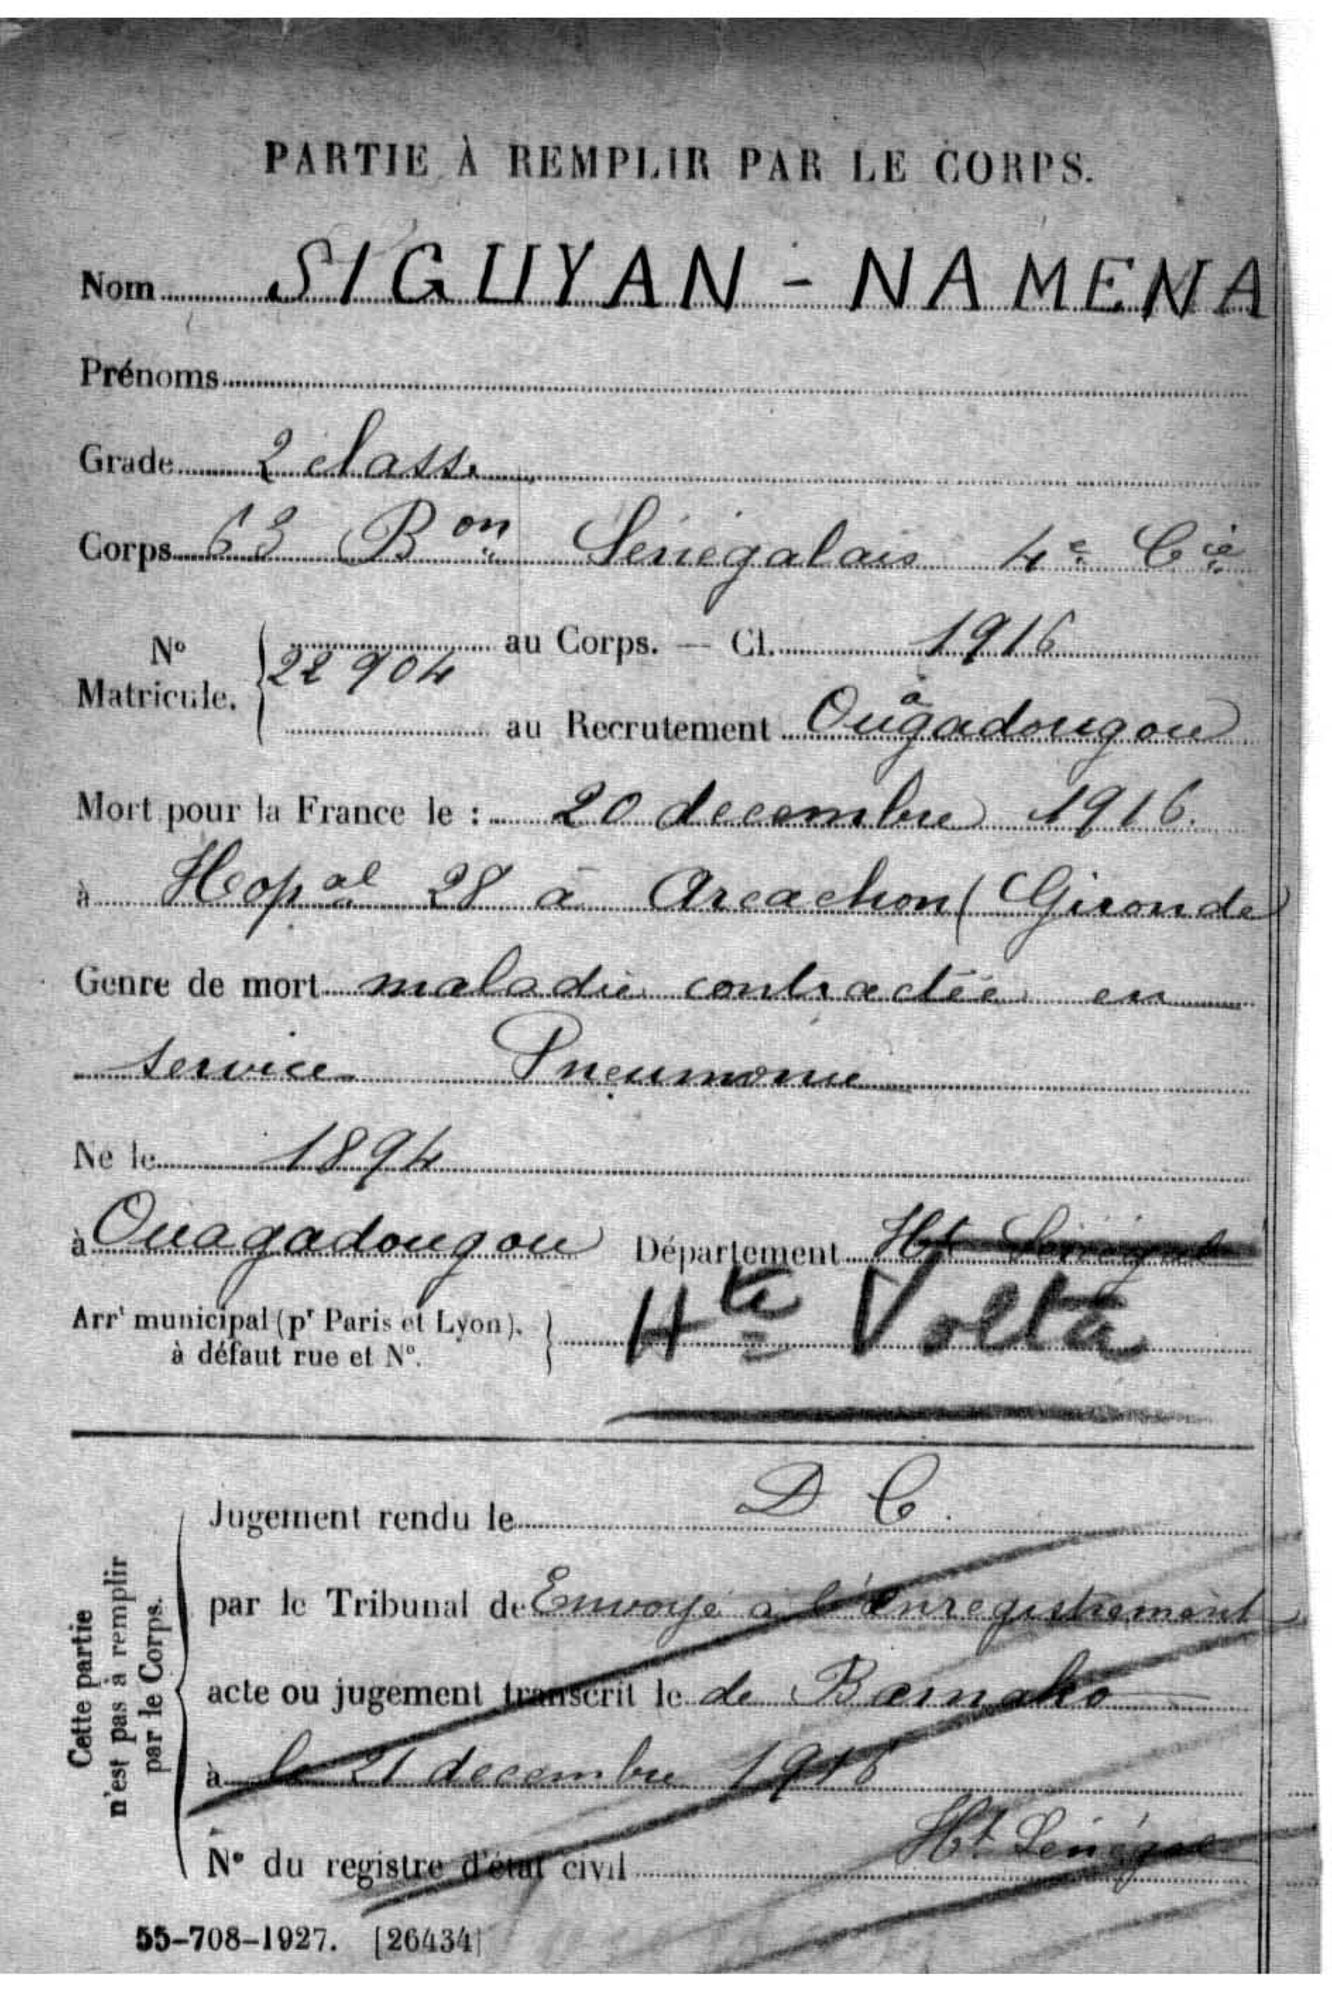 PARTIE À REMPLIR PAR LE CORPS.
Nom SIGUYAN - NAMENA
Prénoms
Grade 2 classe
Corps 63 Bon Sénégalais 4e Cie
No Matricule. 22904 au Corps. — Cl. 1916
au Recrutement Ouagadougou
Mort pour la France le : 20 decembre 1916.
à Hopal 28 à Arcachon (Gironde)
Genre de mort maladie contractée en
service Pneumonie
Né le 1894
à Ouagadougou Département Ht Sénégal
Arrt municipal (pr Paris et Lyon), à défaut rue et No. Hte Volta
Cette partie n'est pas à remplir par le Corps.
Jugement rendu le D C.
par le Tribunal de Envoyé a l'enregistrement
acte ou jugement transcrit le de Bamako
à le 21 decembre 1916
No du registre d'état civil Ht Sénégal
55-708-1927. [26434]